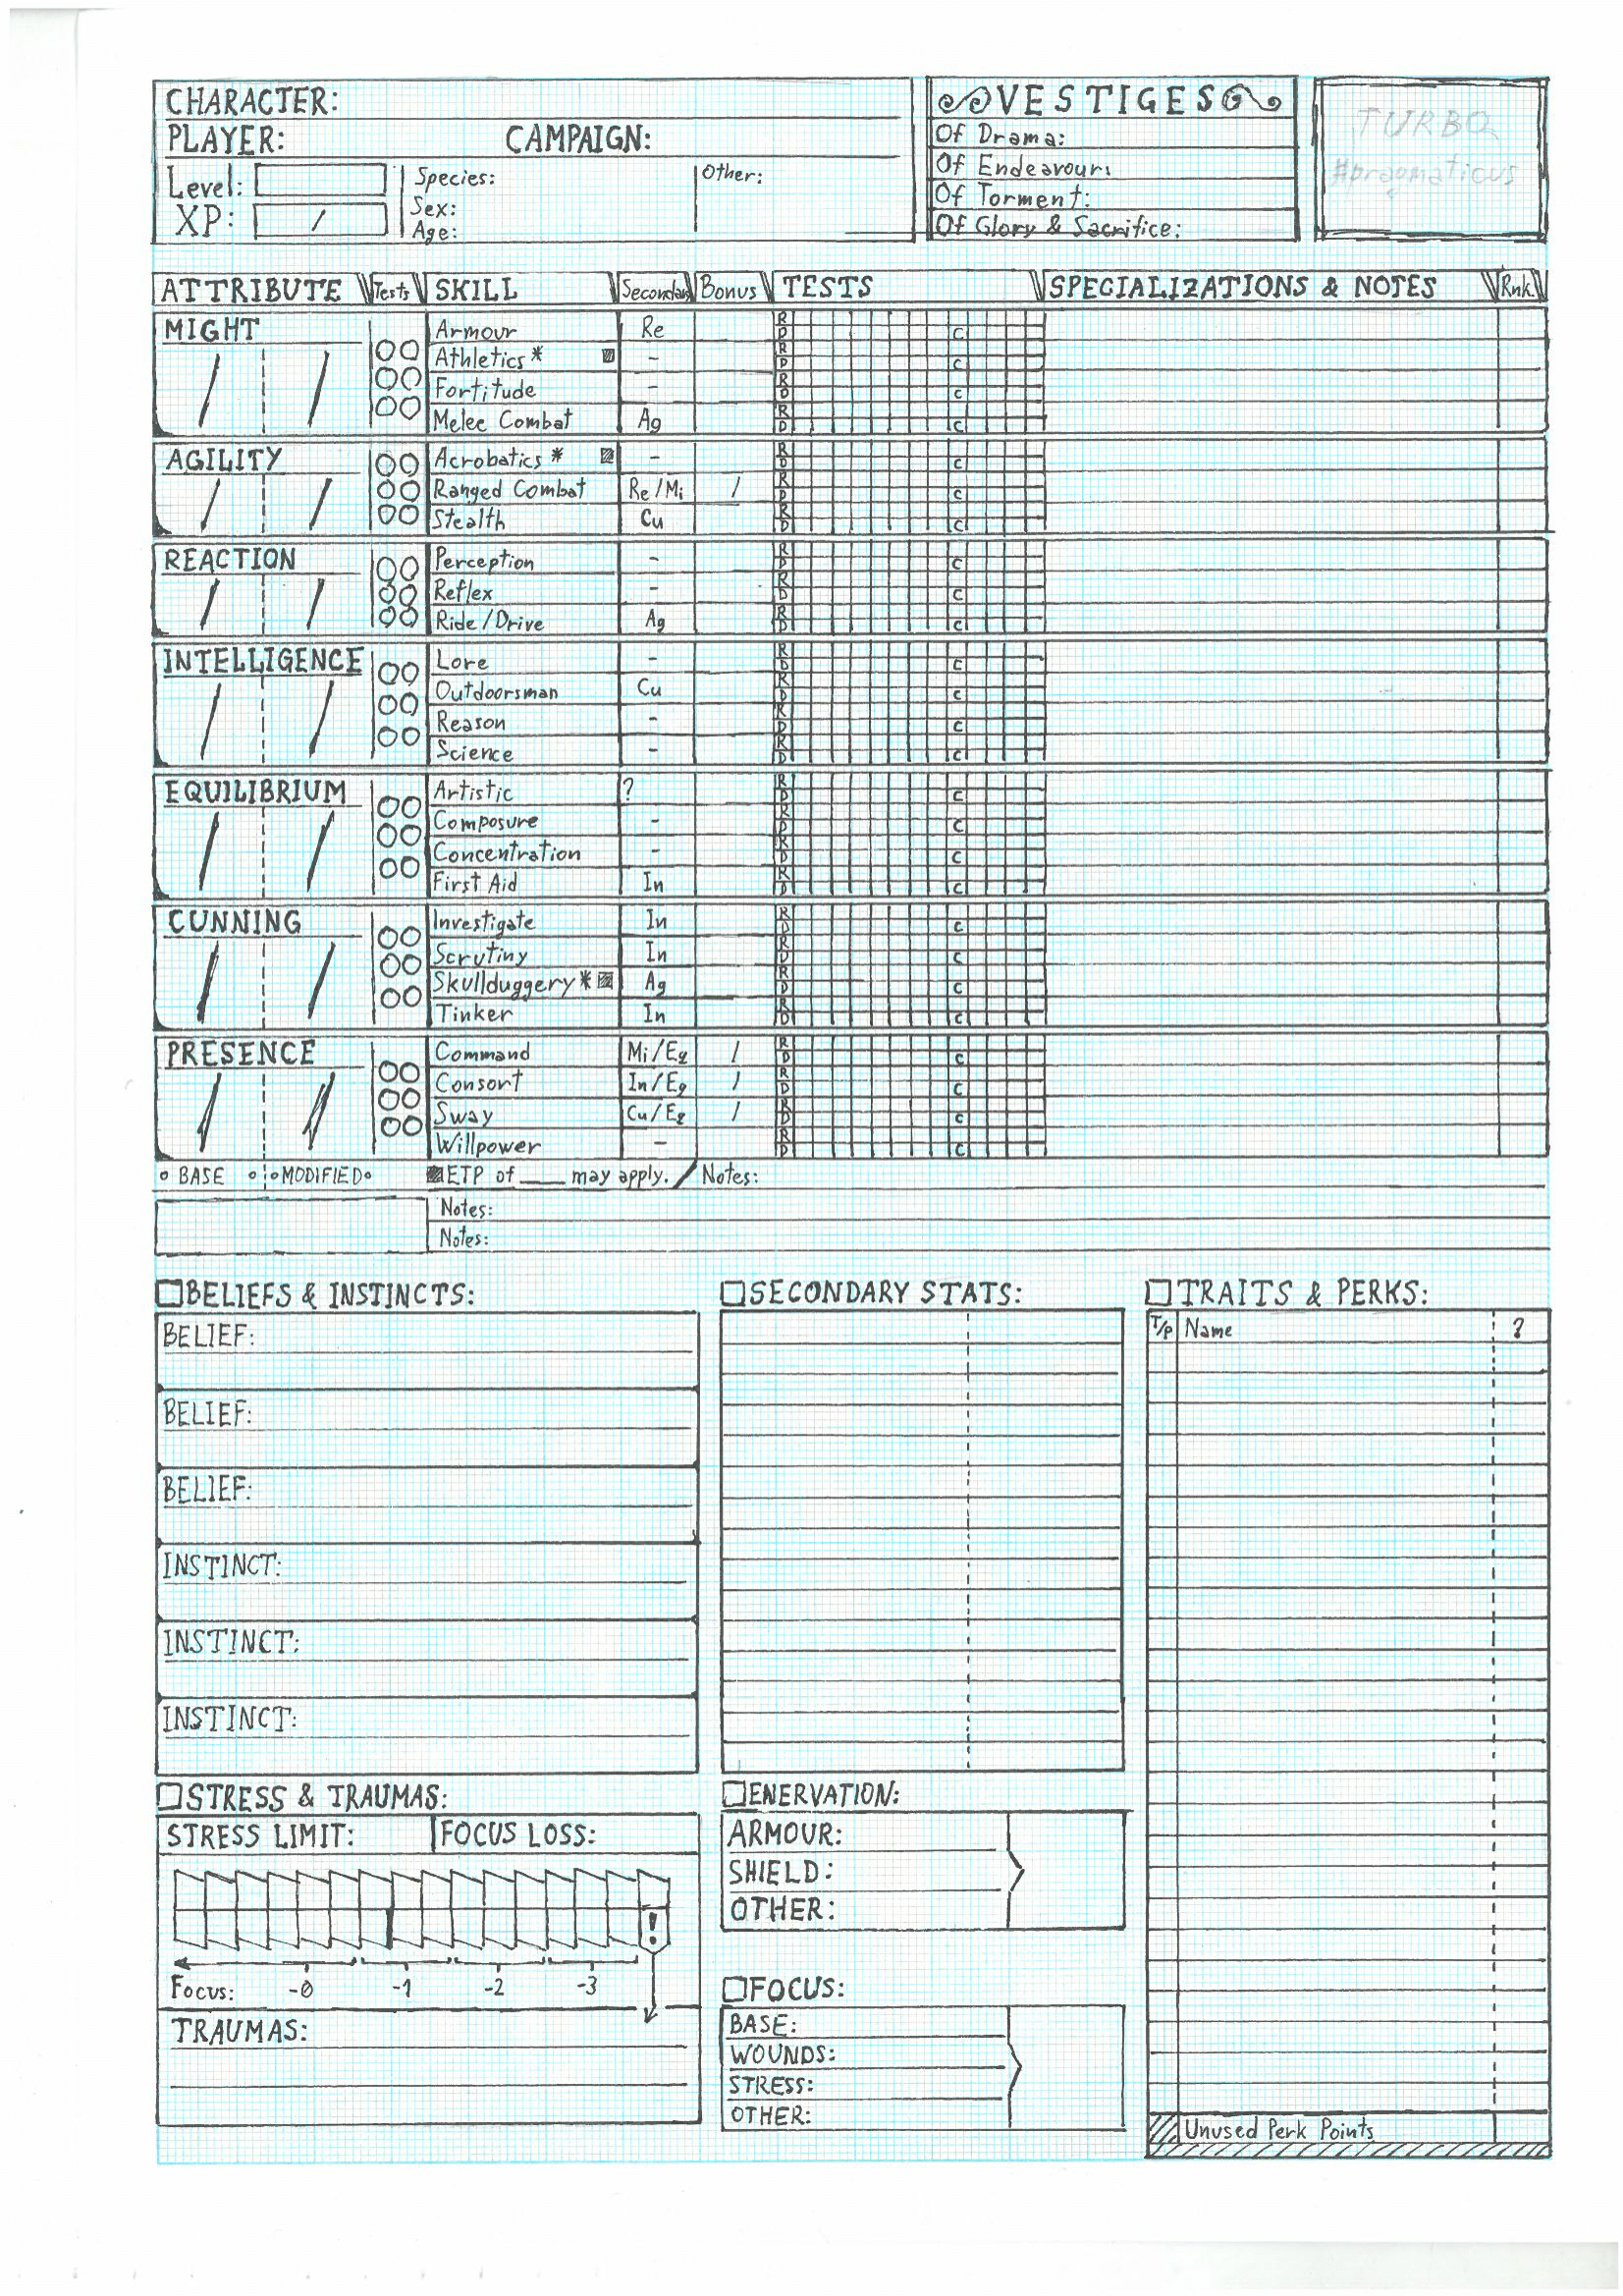 CHARACTER:
PLAYER: CAMPAIGN:
Level: Species: Other:
XP: / Sex:
Age:
VESTIGES
Of Drama:
Of Endeavour:
Of Torment:
Of Glory & Sacrifice:
TURBO
#pragmaticus
ATTRIBUTE Tests SKILL Secondary Bonus TESTS SPECIALIZATIONS & NOTES Rnk
MIGHT
Armour Re R D C
Athletics * - R D C
Fortitude - R D C
Melee Combat Ag R D C
AGILITY
Acrobatics * - R D C
Ranged Combat Re/Mi / R D C
Stealth Cu R D C
REACTION
Perception - R D C
Reflex - R D C
Ride/Drive Ag R D C
INTELLIGENCE
Lore - R D C
Outdoorsman Cu R D C
Reason - R D C
Science - R D C
EQUILIBRIUM
Artistic ? R D C
Composure - R D C
Concentration - R D C
First Aid In R D C
CUNNING
Investigate In R D C
Scrutiny In R D C
Skullduggery * Ag R D C
Tinker In R D C
PRESENCE
Command Mi/Eq / R D C
Consort In/Eq / R D C
Sway Cu/Eq / R D C
Willpower - R D C
BASE MODIFIED ETP of ___ may apply. / Notes:
Notes:
Notes:
BELIEFS & INSTINCTS:
BELIEF:
BELIEF:
BELIEF:
INSTINCT:
INSTINCT:
INSTINCT:
SECONDARY STATS:
TRAITS & PERKS:
T/P Name ?
Unused Perk Points
STRESS & TRAUMAS:
STRESS LIMIT: FOCUS LOSS:
!
Focus: -0 -1 -2 -3
TRAUMAS:
ENERVATION:
ARMOUR:
SHIELD:
OTHER:
FOCUS:
BASE:
WOUNDS:
STRESS:
OTHER: